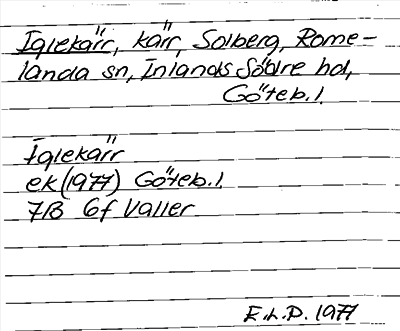 Iglekärr, kärr, Solberg, Rome-
landa sn, Inlands Södre hd,
Göteb. l.
Iglekärr
ek (1977) Göteb. l.
7B 6f Valler
E.L.P. 1977